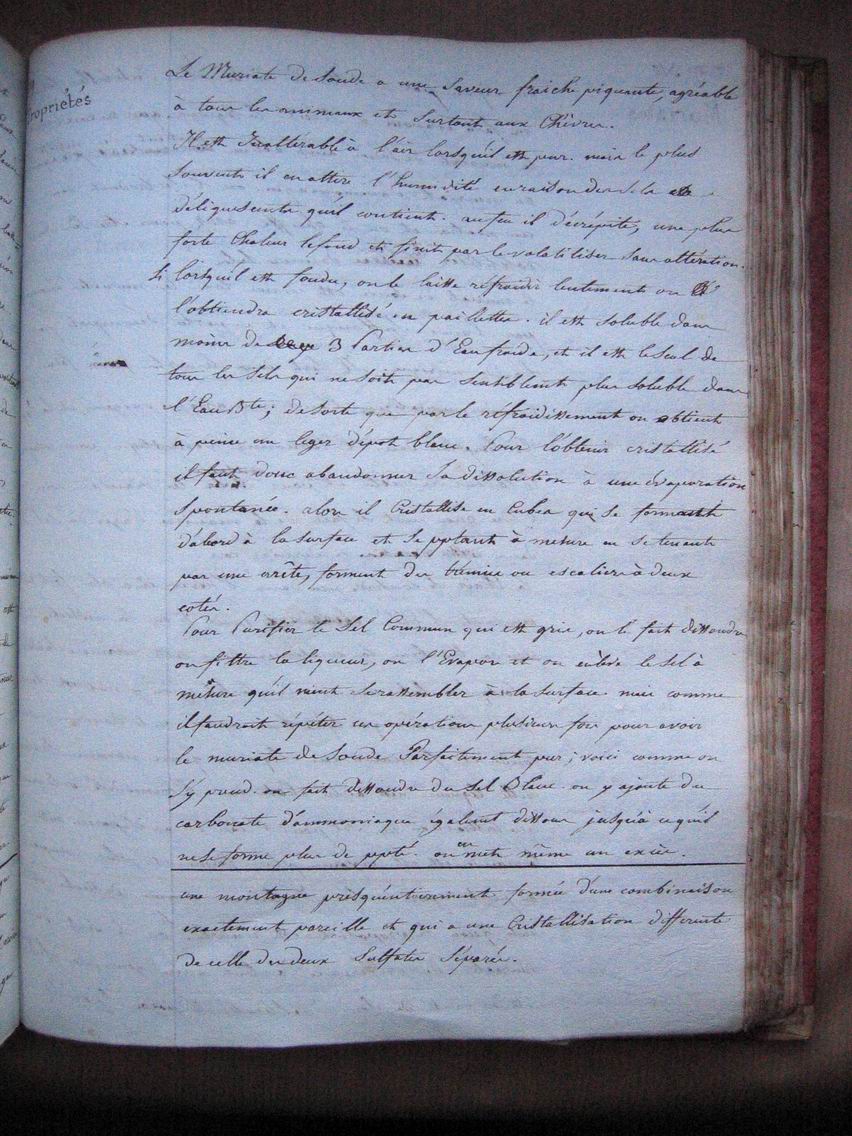 Propriétés
Le Muriate de Soude a une Saveur fraiche piquante, agréable
à tous les animaux et surtout aux Chèvres.
Il est Inaltérable à l'air lorsqu'il est pur. mais le plus
souvent il en attire l'humidité en raison des sels
déliquescents qu'il contient. au feu il décrépite, une plus
forte Chaleur le fond et finit par le volatiliser sans altération.
Si lorsqu'il est fondu, on le laisse réfroidir lentement on
l'obtiendra cristallisé en paillettes. il est soluble dans
moins de 3 Parties d'Eau froide, et il est le seul de
tous les Sels qui ne soit pas sensiblement plus soluble dans
l'Eau Bte; de sorte que par le réfroidissement on obtient
à peine un leger dépot blanc. Pour l'obtenir cristallisé
il faut donc abandonner sa dissolution à une évaporation
spontanée. alors il Cristallise en Cubes qui se forment
d'abord à la surface et se
par une arrête, forment des trémies ou escaliers à deux
cotés.
Pour Purifier le Sel Commun qui est gris, on le fait dissoudre
on filtre la liqueur, on l'Evapore et on enlève le sel à
mesure qu'il vient se rassembler à la surface mais comme
il faudrait répéter ces opérations plusieurs fois pour avoir
le muriate de Soude Parfaitement pur; voici comme on
s'y prend. on fait dissoudre du Sel Blanc. on y ajoute du
carbonate d'ammoniaque également dissous jusqu'à ce qu'il
ne se forme plus de ppté. on en met même un excès.
une montagne presqu'entierement formée d'une combinaison
exactement pareille et qui a une Cristallisation differente
de celle des deux Sulfates Séparés.